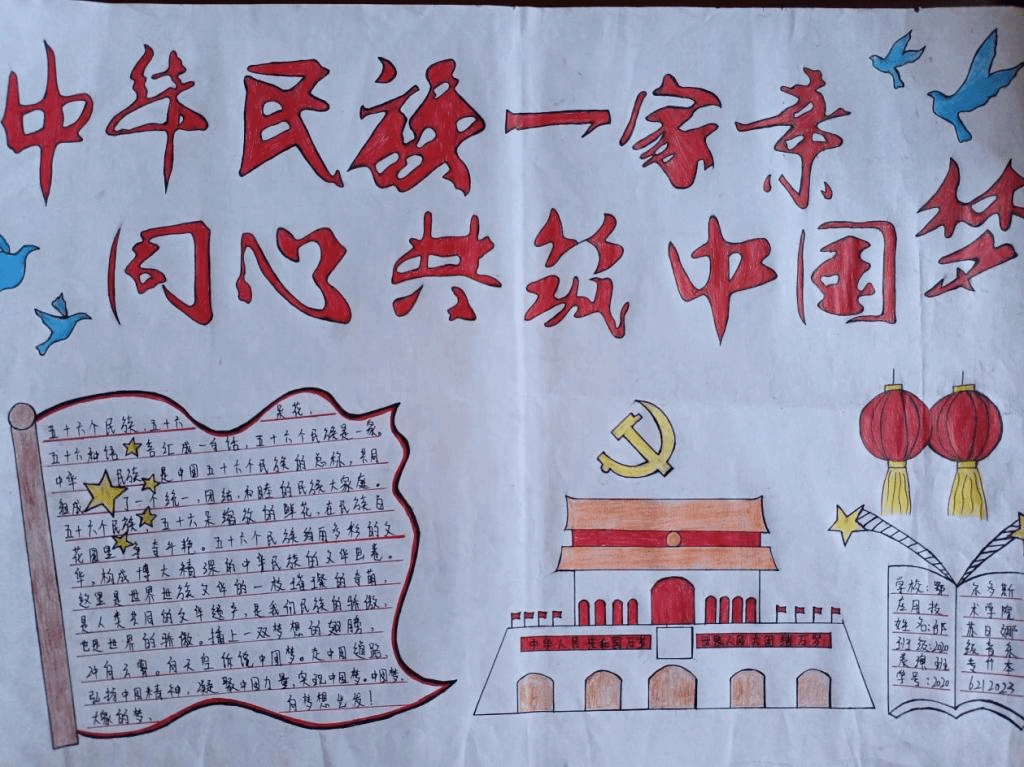 中华民族一家亲
同心共筑中国梦
五十六个民族,五十六 朵花,
五十六种语 言汇成一句话,五十六个民族是一家。
中华 民族 是中国五十六个民族的总称,共同
组成 了一个统一,团结,和睦的民族大家庭。
五十六个民族 五十六朵绽放的鲜花,在民族百
花园里 争奇斗艳。五十六个民族缔造多彩的文
华,构成博大精深的中华民族的文华画卷。
这里是世界世族文华的一枝璀璨的奇葩,
是人类共同的文华遗产,是我们民族的骄傲,
也是世界的骄傲。插上一双梦想的翅膀,
冲向云霄。向大鸟诉说中国梦。走中国道路,
弘扬中国精神,凝聚中国力量,实现中国梦。中国梦,
大家的梦。 向梦想出发!
中华人民共和国万岁
世界人民大团结万岁
学校:鄂 尔多斯
应用技 术学院
姓名: 苏日娜
班级:2020 级音表
表理班 专升本
学号:2020 6212023